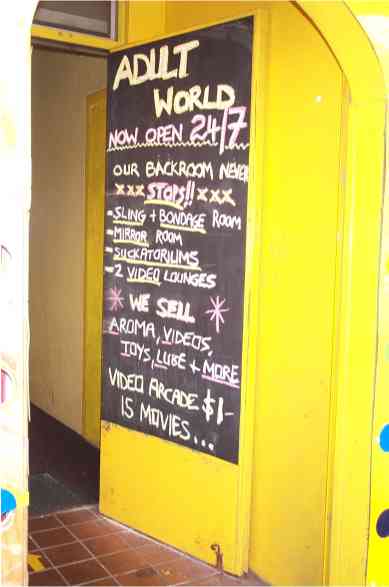 ADULT
WORLD
NOW OPEN 24/7
OUR BACKROOM NEVER
xxx STOPS!! xxx
-SLING + BONDAGE ROOM
-MIRROR ROOM
-SUCKATORIUMS
-2 VIDEO LOUNGES
* WE SELL *
AROMA, VIDEOS,
TOYS, LUBE + MORE
VIDEO ARCADE $1-
15 MOVIES...